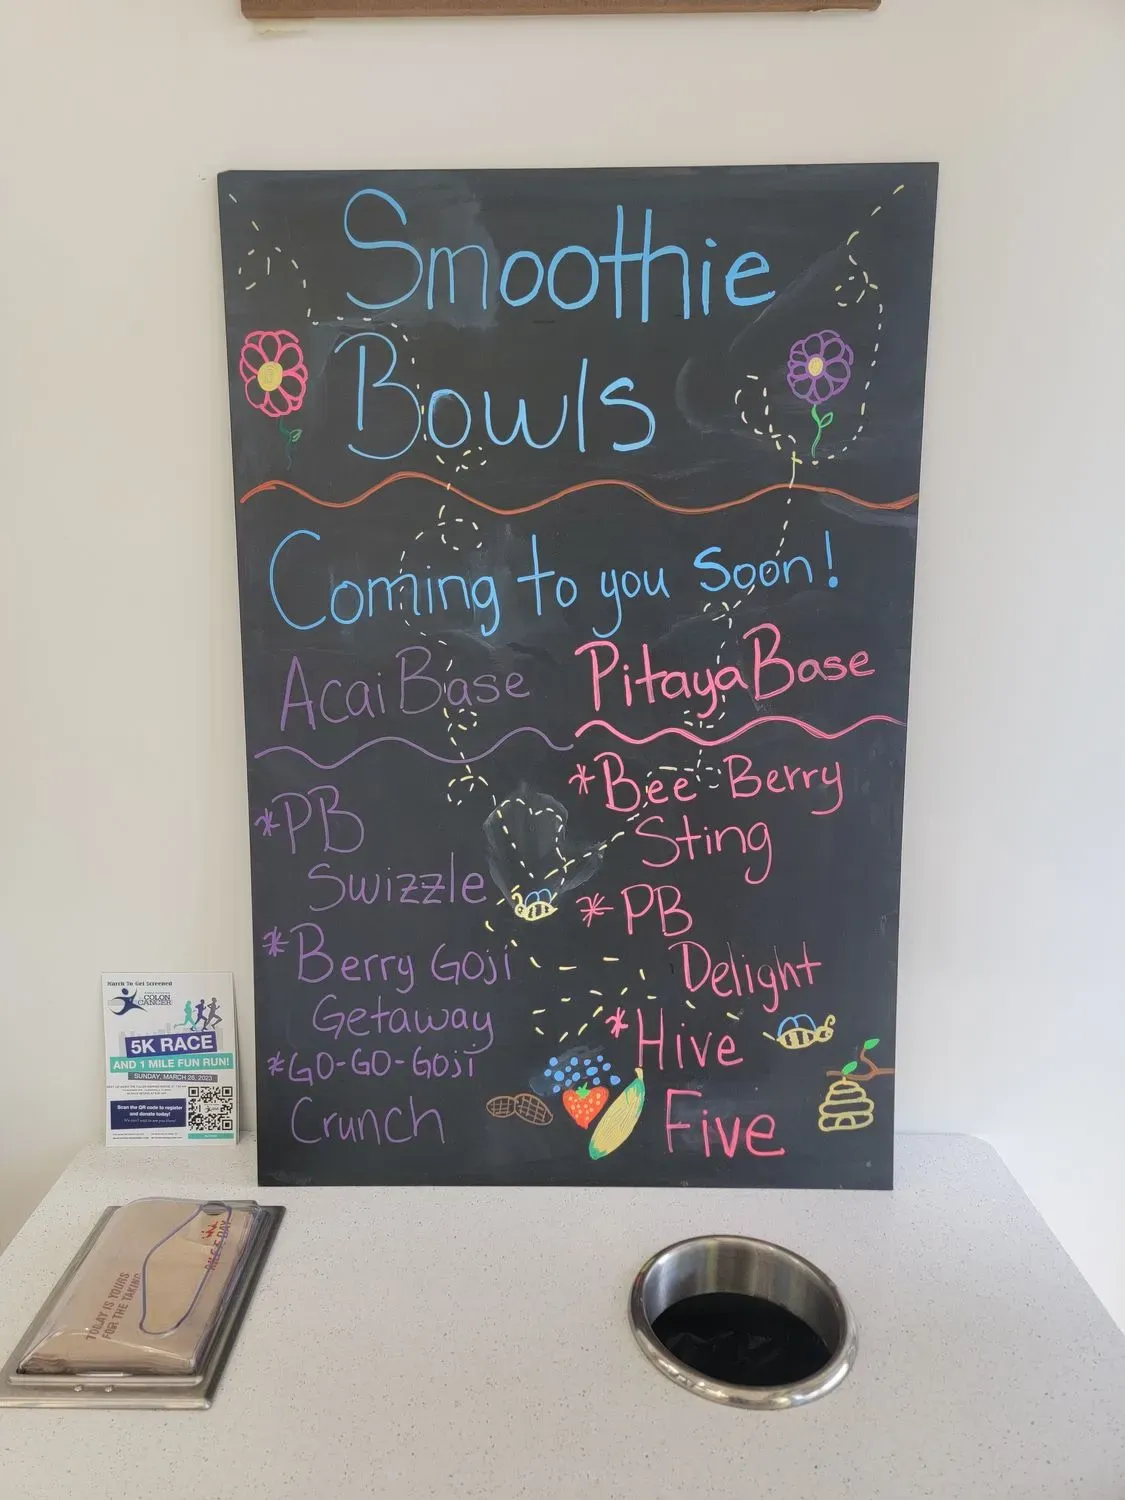 Smoothie
Bowls
Coming to you Soon!
Acai Base
*PB
Swizzle
*Berry Goji
Getaway
*GO-GO-GOji
Crunch
Pitaya Base
*Bee Berry
Sting
*PB
Delight
*Hive
Five
March To Get Screened
COLON
CANCER
5K RACE
AND 1 MILE FUN RUN!
SUNDAY, MARCH 26, 2023
Scan the QR code to register
and donate today!
TODAY IS YOURS
FOR THE TAKING